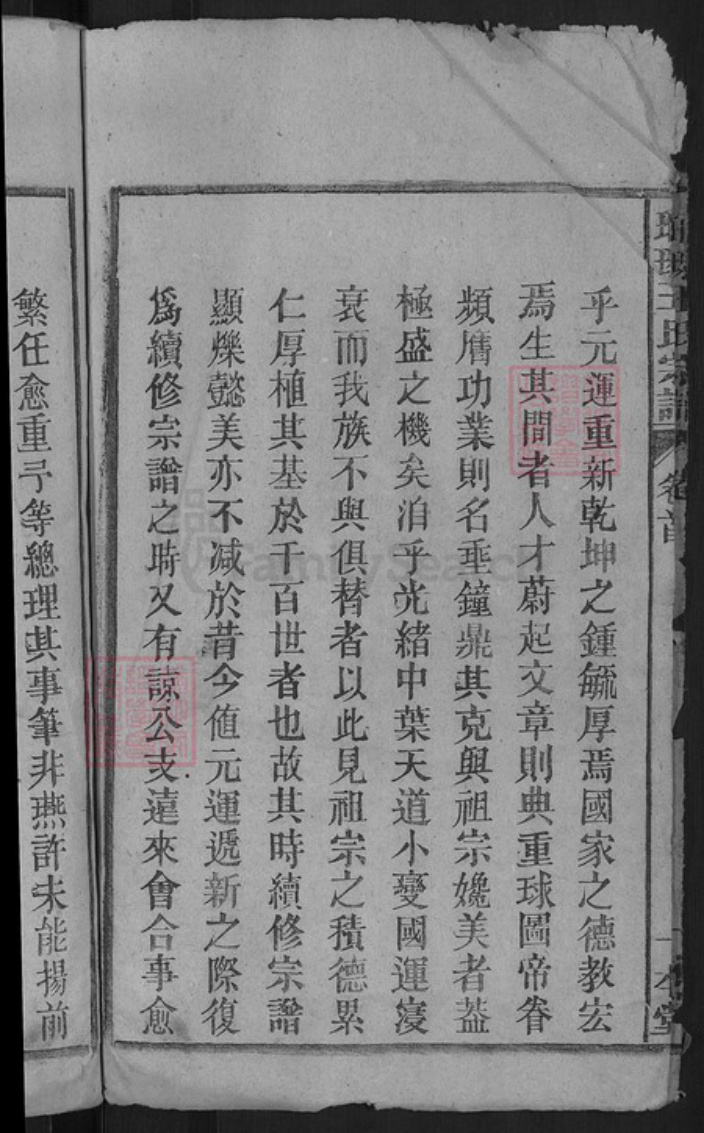 瑯琊王氏宗譜 卷首
乎元運重新乾坤之鍾毓厚焉國家之德教宏
焉生其間者人才蔚起文章則典重球圖帝眷
頻膺功業則名垂鐘鼎其克與祖宗媲美者葢
極盛之機矣洎乎光緒中葉天道小變國運寖
衰而我族不與俱替者以此見祖宗之積德累
仁厚植其基於千百世者也故其時續修宗譜
顯爍懿美亦不减於昔今值元運遞新之際復
爲續修宗譜之時又有諒公支遠來會合事愈
繁任愈重予等總理其事筆非燕許未能揚前